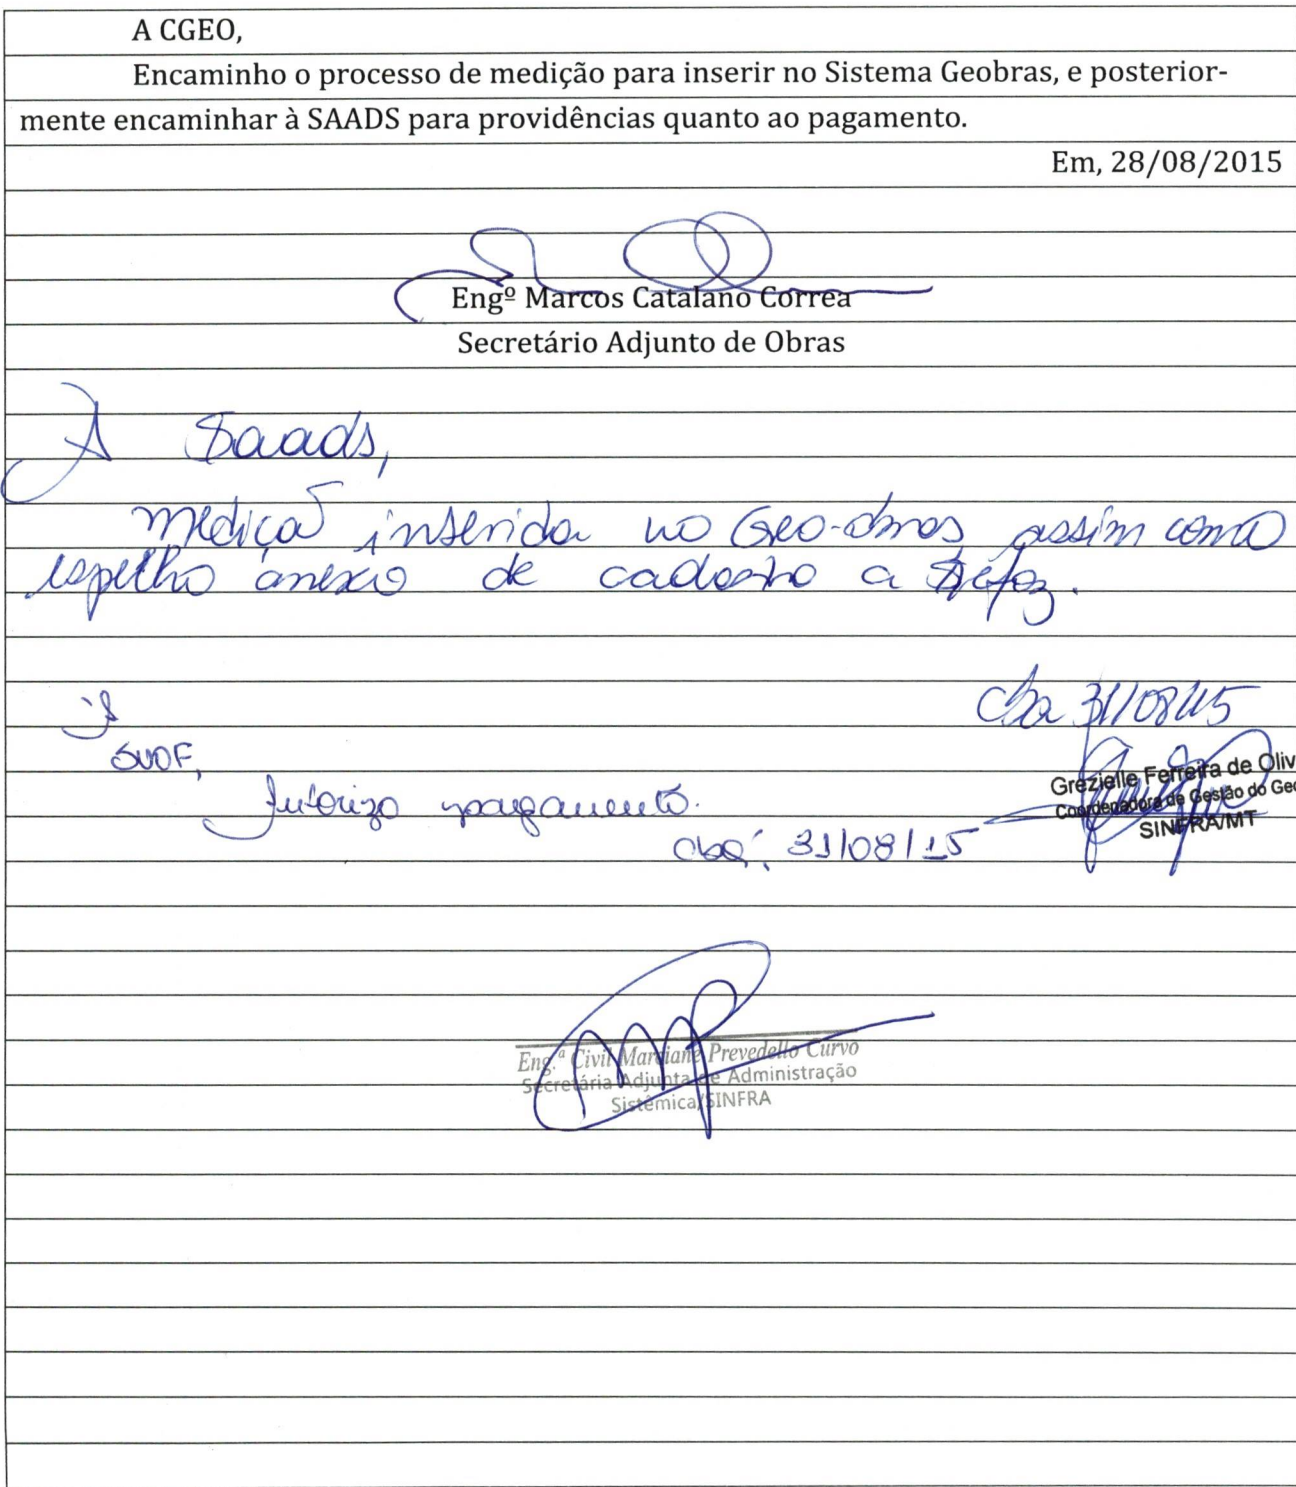 A CGEO,
Encaminho o processo de medição para inserir no Sistema Geobras, e posterior-
mente encaminhar à SAADS para providências quanto ao pagamento.
Em, 28/08/2015
Engº Marcos Catalano Correa
Secretário Adjunto de Obras
À Saads,
medição inserida no Geo-obras assim como
espelho anexo de cadastro a Sefaz.
Cba 31/08/15
Grezielle Ferreira de Oliv
Coordenadora de Gestão do Geo
SINFRA/MT
À
SUOF,
Autorizo pagamento.
Cbá, 31/08/15
Eng.ª Civil Marciane Prevedello Curvo
Secretária Adjunta de Administração
Sistêmica/SINFRA